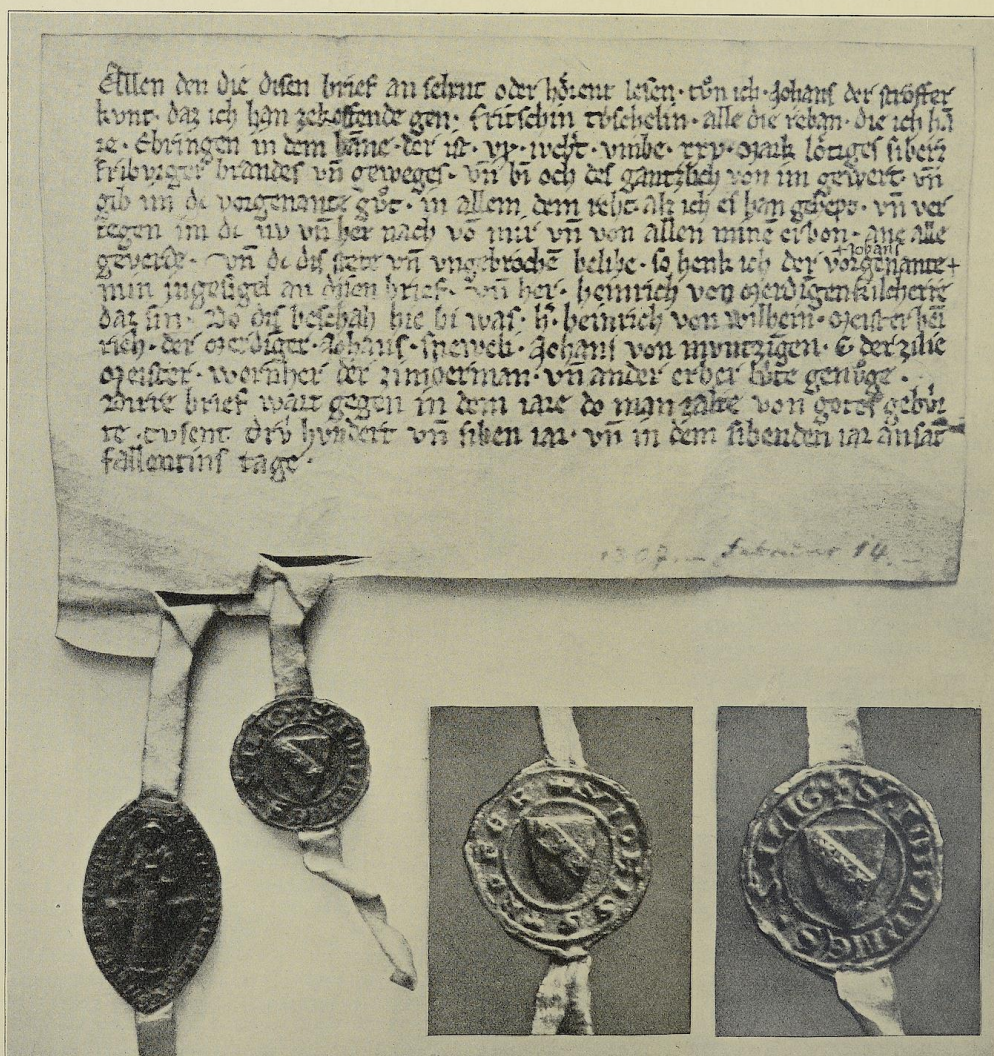 Allen den die disen brief an sehnt oder hörent lesen · tůn ich · Johans der ströffer
kvnt · daz ich han zekoffende gen · fritschin trschelin · alle die reban · die ich hā
ze · Ebringen in dem bāne · der ist · vmbe · xxv · Mark lötiges silbers
friburger brandes vn̄ geweges · vn̄ bi och des gäntzlich von im gewert · vn̄
gib im dc vorgenante gůt · in allem dem reht · alz ich ez han · vn̄ ver
zegen im dc nv vn̄ her nach vō mir vn̄ von allen minē erbon · ane alle
geverde · vn̄ dc dis stete vn̄ vngebrochē belibe · so henk ich der vorgenante +
Johans
min jngesigel an disen brief · vn̄ her · heinrich von Merdigen kilcherre
daz sin · Do dis beschah hie bi was · h̄ · heinrich von wilhein · Meister hei
rich · der Merdiger · Johans · sneweli · Johans von mvntzigen · C der zilie
Meister · wernher der zimberman · vn̄ ander erber lv̂te genůge ·
Dirre brief wart gegen in dem iare do man zalte von gotes gebv̂r
te · tvsent drv̂ hvndert vn̄ siben iar · vn̄ in dem sibenden iar an sāt
fallentins tage ·
1307. – Februar 14. –